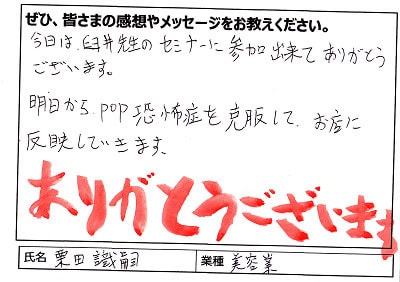 ぜひ、皆さまの感想やメッセージをお教えください。
今日は、臼井先生のセミナーに参加出来てありがとう
ございます。
明日から、POP恐怖症を克服して、お店に
反映していきます。
ありがとうございます
氏名 栗田 識嗣 業種 美容業